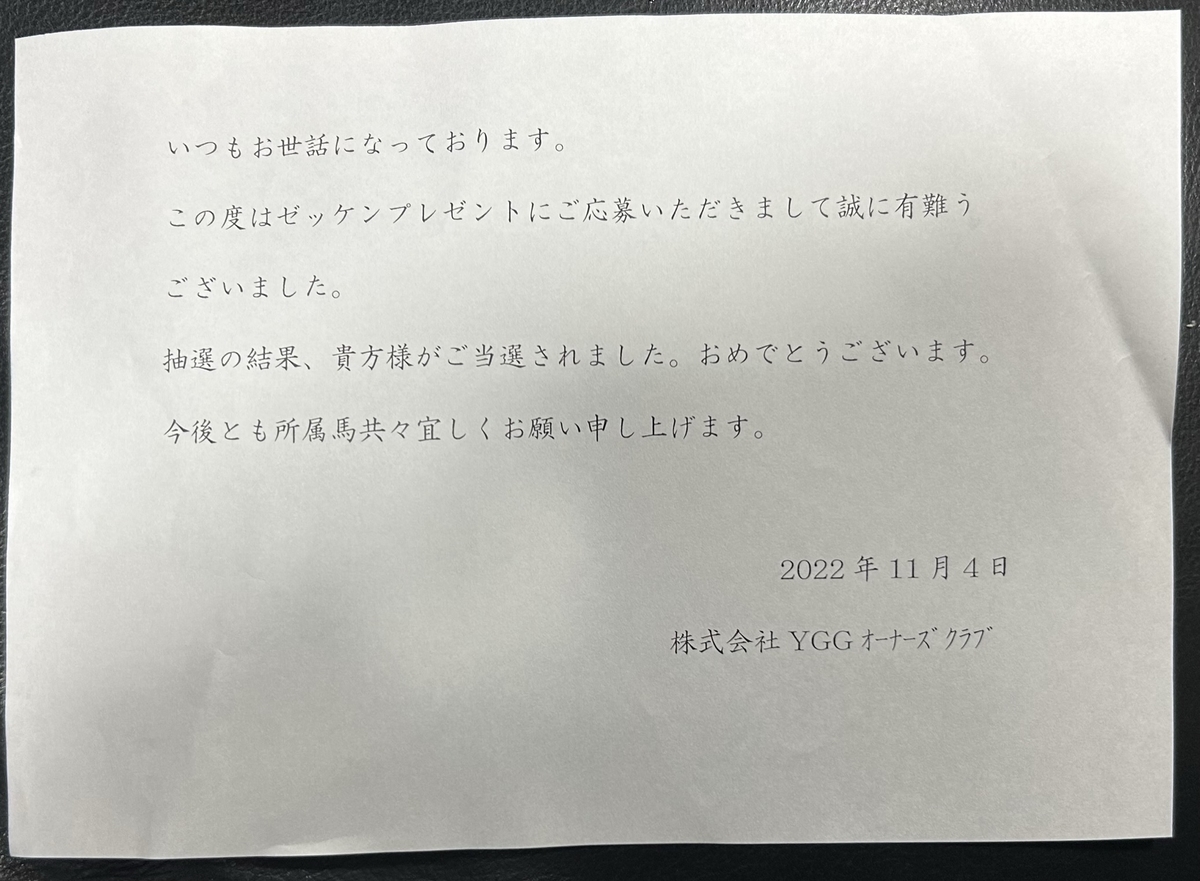 いつもお世話になっております。
この度はゼッケンプレゼントにご応募いただきまして誠に有難う
ございました。
抽選の結果、貴方様がご当選されました。おめでとうございます。
今後とも所属馬共々宜しくお願い申し上げます。
2022 年 11 月 4 日
株式会社 YGG ｵｰﾅｰｽﾞｸﾗﾌﾞ